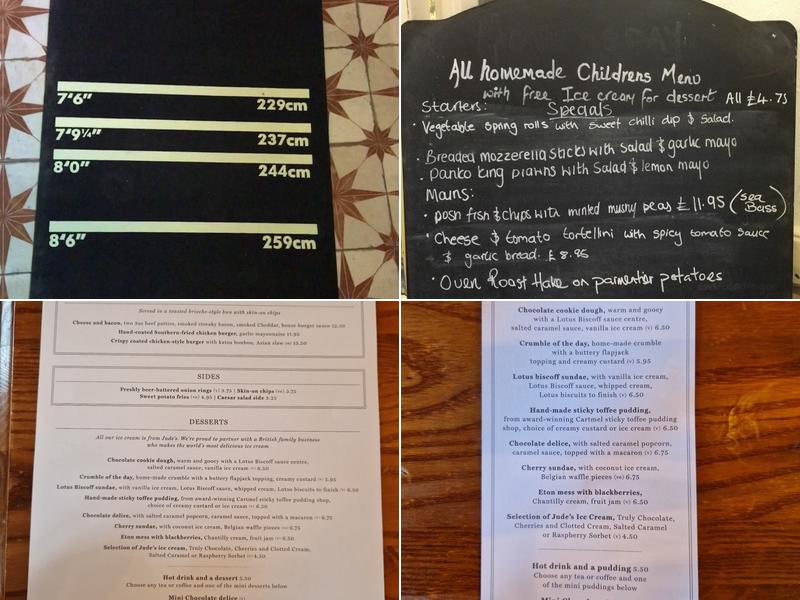 7'6" 229cm
7'9¼" 237cm
8'0" 244cm
8'6" 259cm
All homemade Childrens Menu
with free Ice cream for dessert All £4.75
Starters: Specials
· Vegetable spring rolls with sweet chilli dip & salad.
· Breaded mozzerella sticks with salad & garlic mayo
· Panko king prawns with Salad & lemon mayo
Mains:
· posh fish & chips with minted mushy peas £11.95 (sea Bass)
· Cheese & tomato tortellini with spicy tomato sauce
& garlic bread. £8.95
· Oven Roast Hake on parmentier potatoes
Served in a toasted brioche-style bun with skin-on chips
Cheese and bacon, two 3oz beef patties, smoked streaky bacon, smoked Cheddar, house burger sauce
Hand-coated Southern-fried chicken burger, garlic mayonnaise 11.95
Crispy coated chicken-style burger with katsu bonbon, Asian slaw 13.50
SIDES
Freshly beer-battered onion rings (v) 3.75 | Skin-on chips (ve) 3.75
Sweet potato fries (ve) 4.95 | Caesar salad side 3.25
DESSERTS
All our ice cream is from Jude's. We're proud to partner with a British family business
who makes the world's most delicious ice cream
Chocolate cookie dough, warm and gooey with a Lotus Biscoff sauce centre,
salted caramel sauce, vanilla ice cream (v) 6.50
Crumble of the day, home-made crumble with a buttery flapjack topping, creamy custard (v) 5.95
Lotus biscoff sundae, with vanilla ice cream, Lotus Biscoff sauce, whipped cream, Lotus biscuits to finish (v) 6.50
Hand-made sticky toffee pudding, from award-winning Cartmel sticky toffee pudding shop,
choice of creamy custard or ice cream (v) 6.50
Chocolate delice, with salted caramel popcorn, caramel sauce, topped with a macaron (v) 6.75
Cherry sundae, with coconut ice cream, Belgian waffle pieces (ve) 6.75
Eton mess with blackberries, Chantilly cream, fruit jam (v) 6.50
Selection of Jude's ice cream, Truly Chocolate, Cherries and Clotted Cream,
Salted Caramel or Raspberry Sorbet (v) 4.50
Hot drink and a dessert 5.50
Choose any tea or coffee and one of the mini desserts below
Mini Chocolate delice (v)
Chocolate cookie dough, warm and gooey
with a Lotus Biscoff sauce centre,
salted caramel sauce, vanilla ice cream (v) 6.50
Crumble of the day, home-made crumble
with a buttery flapjack
topping and creamy custard (v) 5.95
Lotus biscoff sundae, with vanilla ice cream,
Lotus Biscoff sauce, whipped cream,
Lotus biscuits to finish (v) 6.50
Hand-made sticky toffee pudding,
from award-winning Cartmel sticky toffee pudding
shop, choice of creamy custard or ice cream (v) 6.50
Chocolate delice, with salted caramel popcorn,
caramel sauce, topped with a macaron (v) 6.75
Cherry sundae, with coconut ice cream,
Belgian waffle pieces (ve) 6.75
Eton mess with blackberries,
Chantilly cream, fruit jam (v) 6.50
Selection of Jude's Ice Cream, Truly Chocolate,
Cherries and Clotted Cream, Salted Caramel
or Raspberry Sorbet (v) 4.50
Hot drink and a pudding 5.50
Choose any tea or coffee and one
of the mini puddings below